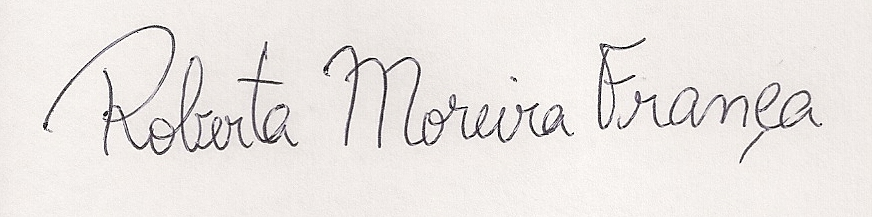 Roberta Moreira França